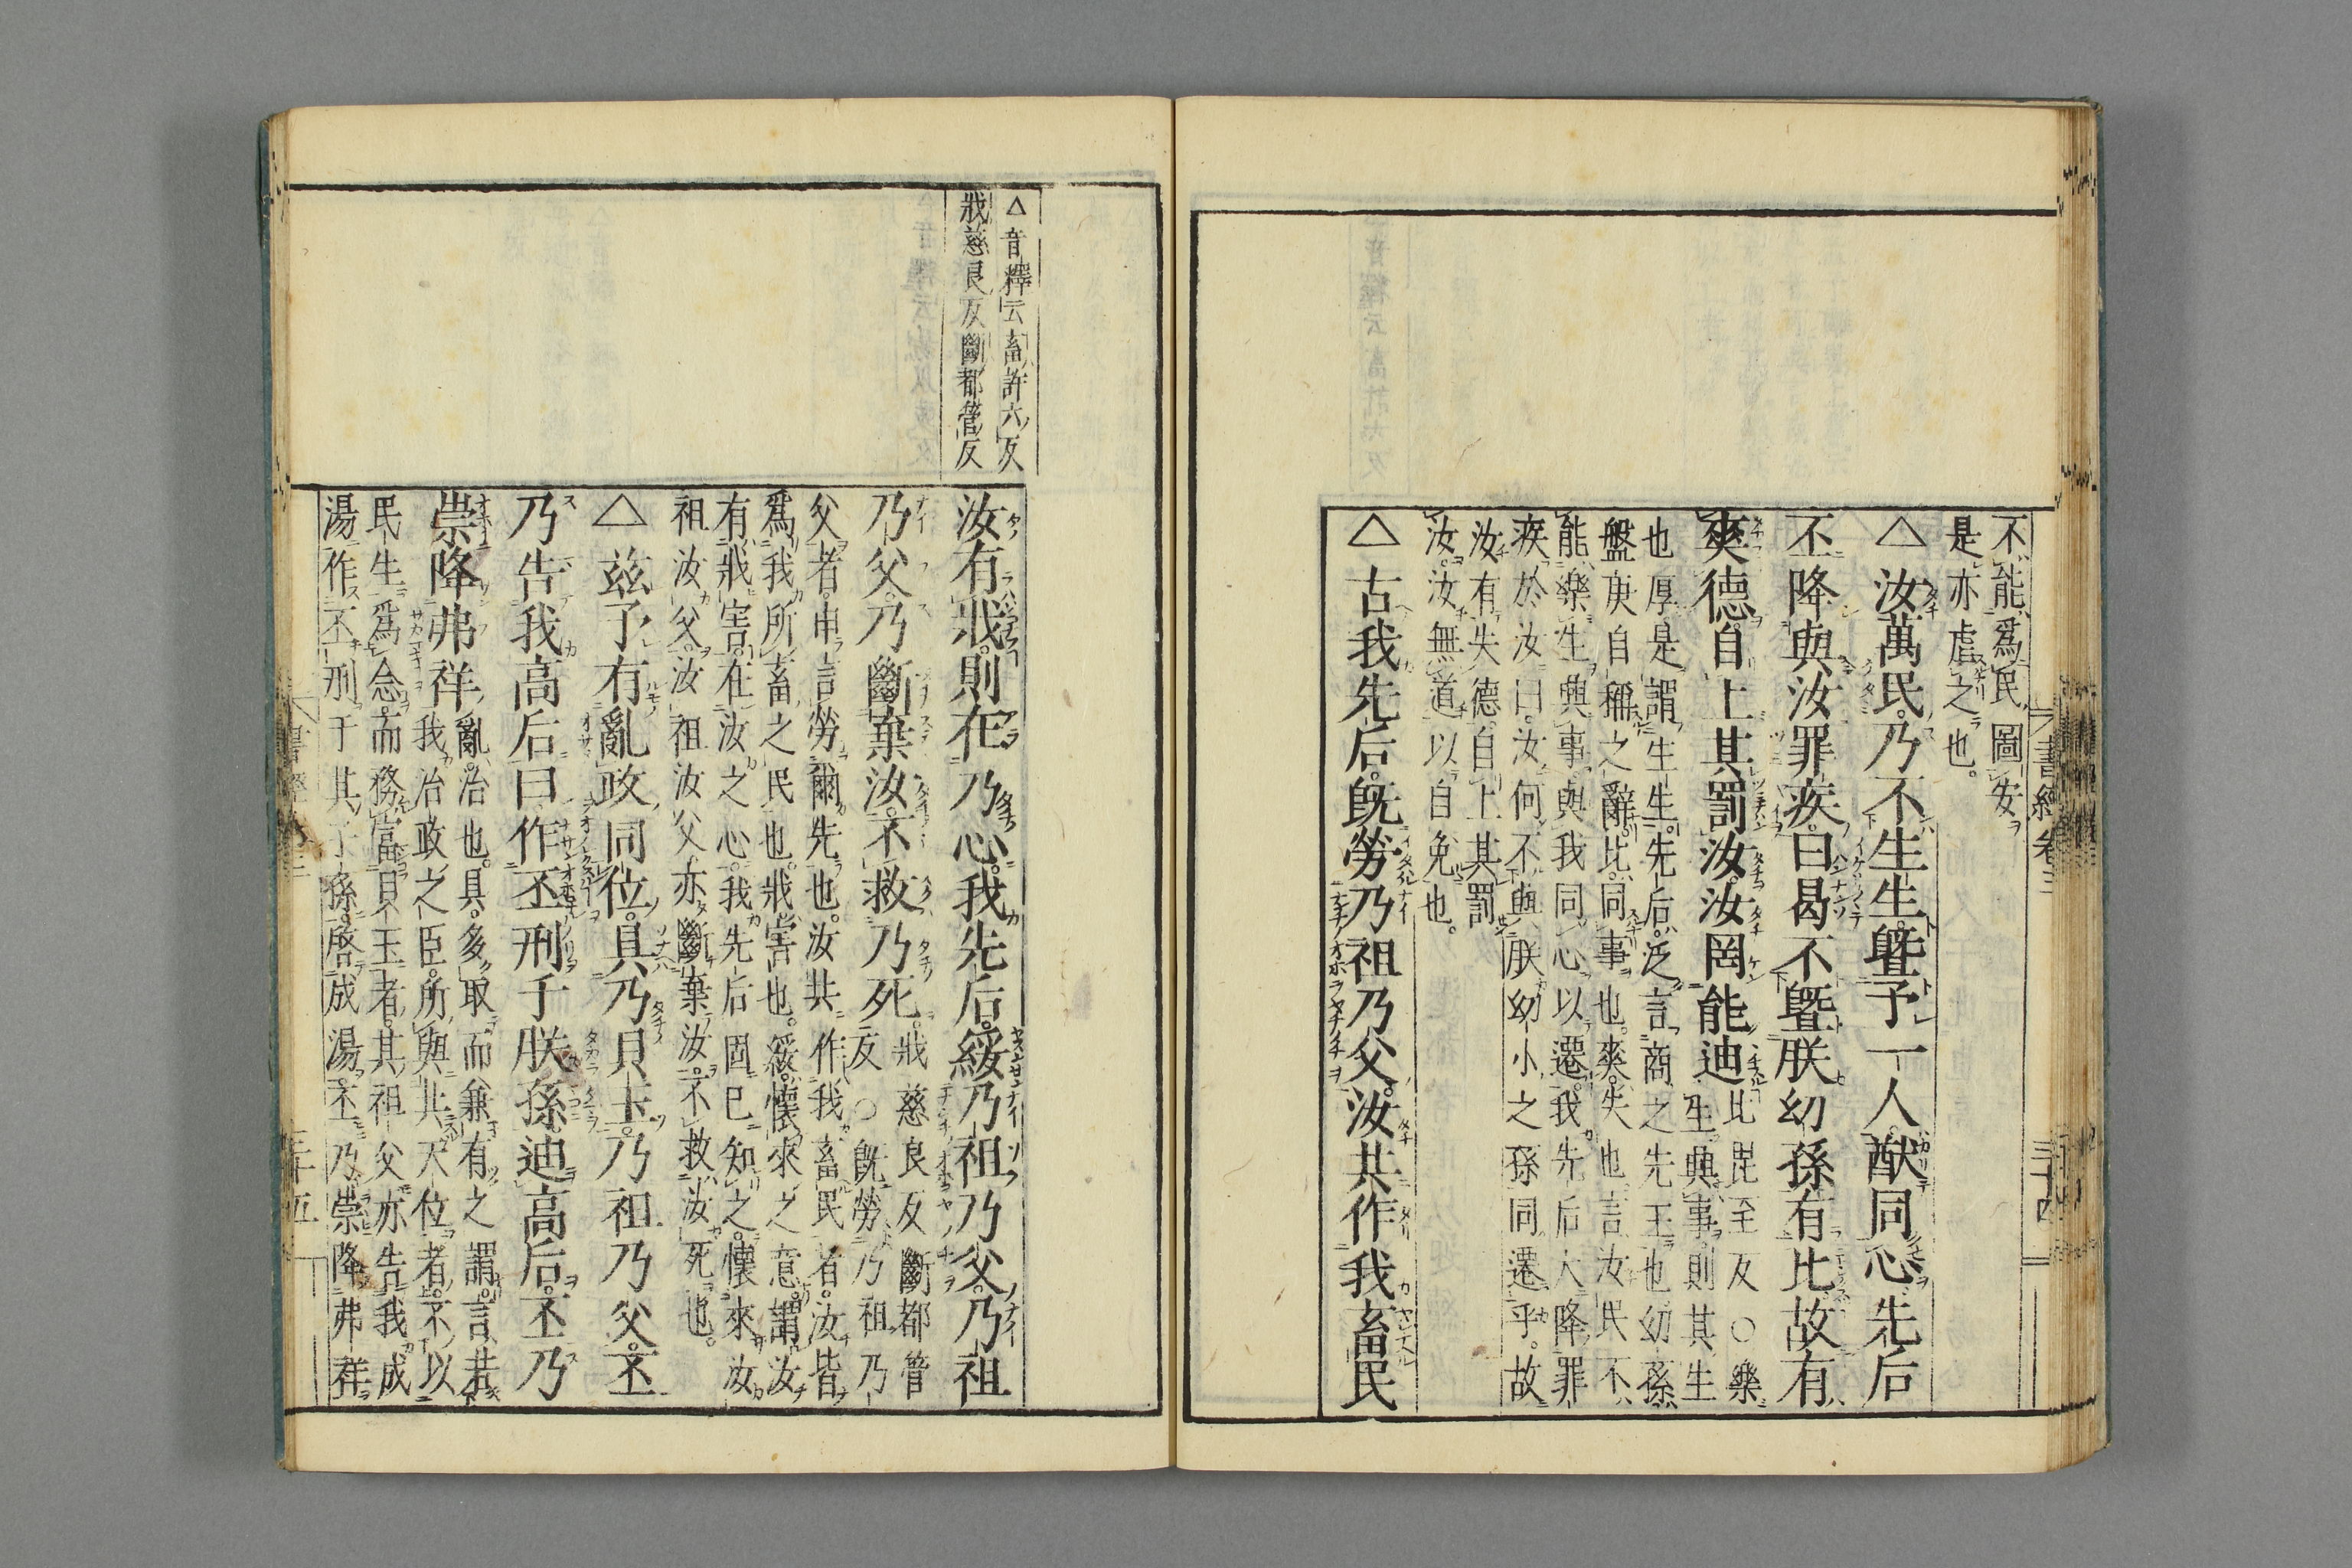 不能爲民圖安
是亦虐之也。
△汝萬民。乃不生生。曁予一人。猷同心。先后
丕降與汝罪疾。曰曷不曁朕幼孫有比。故有
爽德。自上其罰汝。汝罔能迪
比毘至反○樂
生興事。則其生
也厚。是謂生生。先后。泛言商之先王也。幼孫。
盤庚自稱之辭。比。同事也。爽。失也。言汝民不
能樂生興事。與我同心以遷。我先后大降罪
疾於汝曰。汝何不與朕幼小之孫同遷乎。故
汝有失德。自上其罰
汝。汝無道以自免也。
△古我先后。旣勞乃祖乃父。汝共作我畜民
書經卷三
三十四
△音釋云畜許六反
戕慈良反斷都管反
汝有戕。則在乃心。我先后。綏乃祖乃父。乃祖
乃父。乃斷棄汝。不救乃死。
戕慈良反斷都管
反○旣勞乃祖乃
父者。申言勞爾先也。汝共作我畜民者。汝皆
爲我所畜之民也。戕。害也。綏。懷來之意。謂汝
有戕害。在汝之心。我先后固已知之。懷來汝
祖汝父。汝祖汝父亦斷棄汝。不救汝死也。
△茲予有亂政同位。具乃貝玉。乃祖乃父。丕
乃告我高后曰。作丕刑于朕孫。迪高后。丕乃
崇降弗祥。
亂。治也。具。多取而兼有之謂。言若
我治政之臣。所與共天位者。不以
民生爲念。而務富貝玉者。其祖父亦告我成
湯作丕刑于其子孫。啓成湯。丕乃崇降弗祥